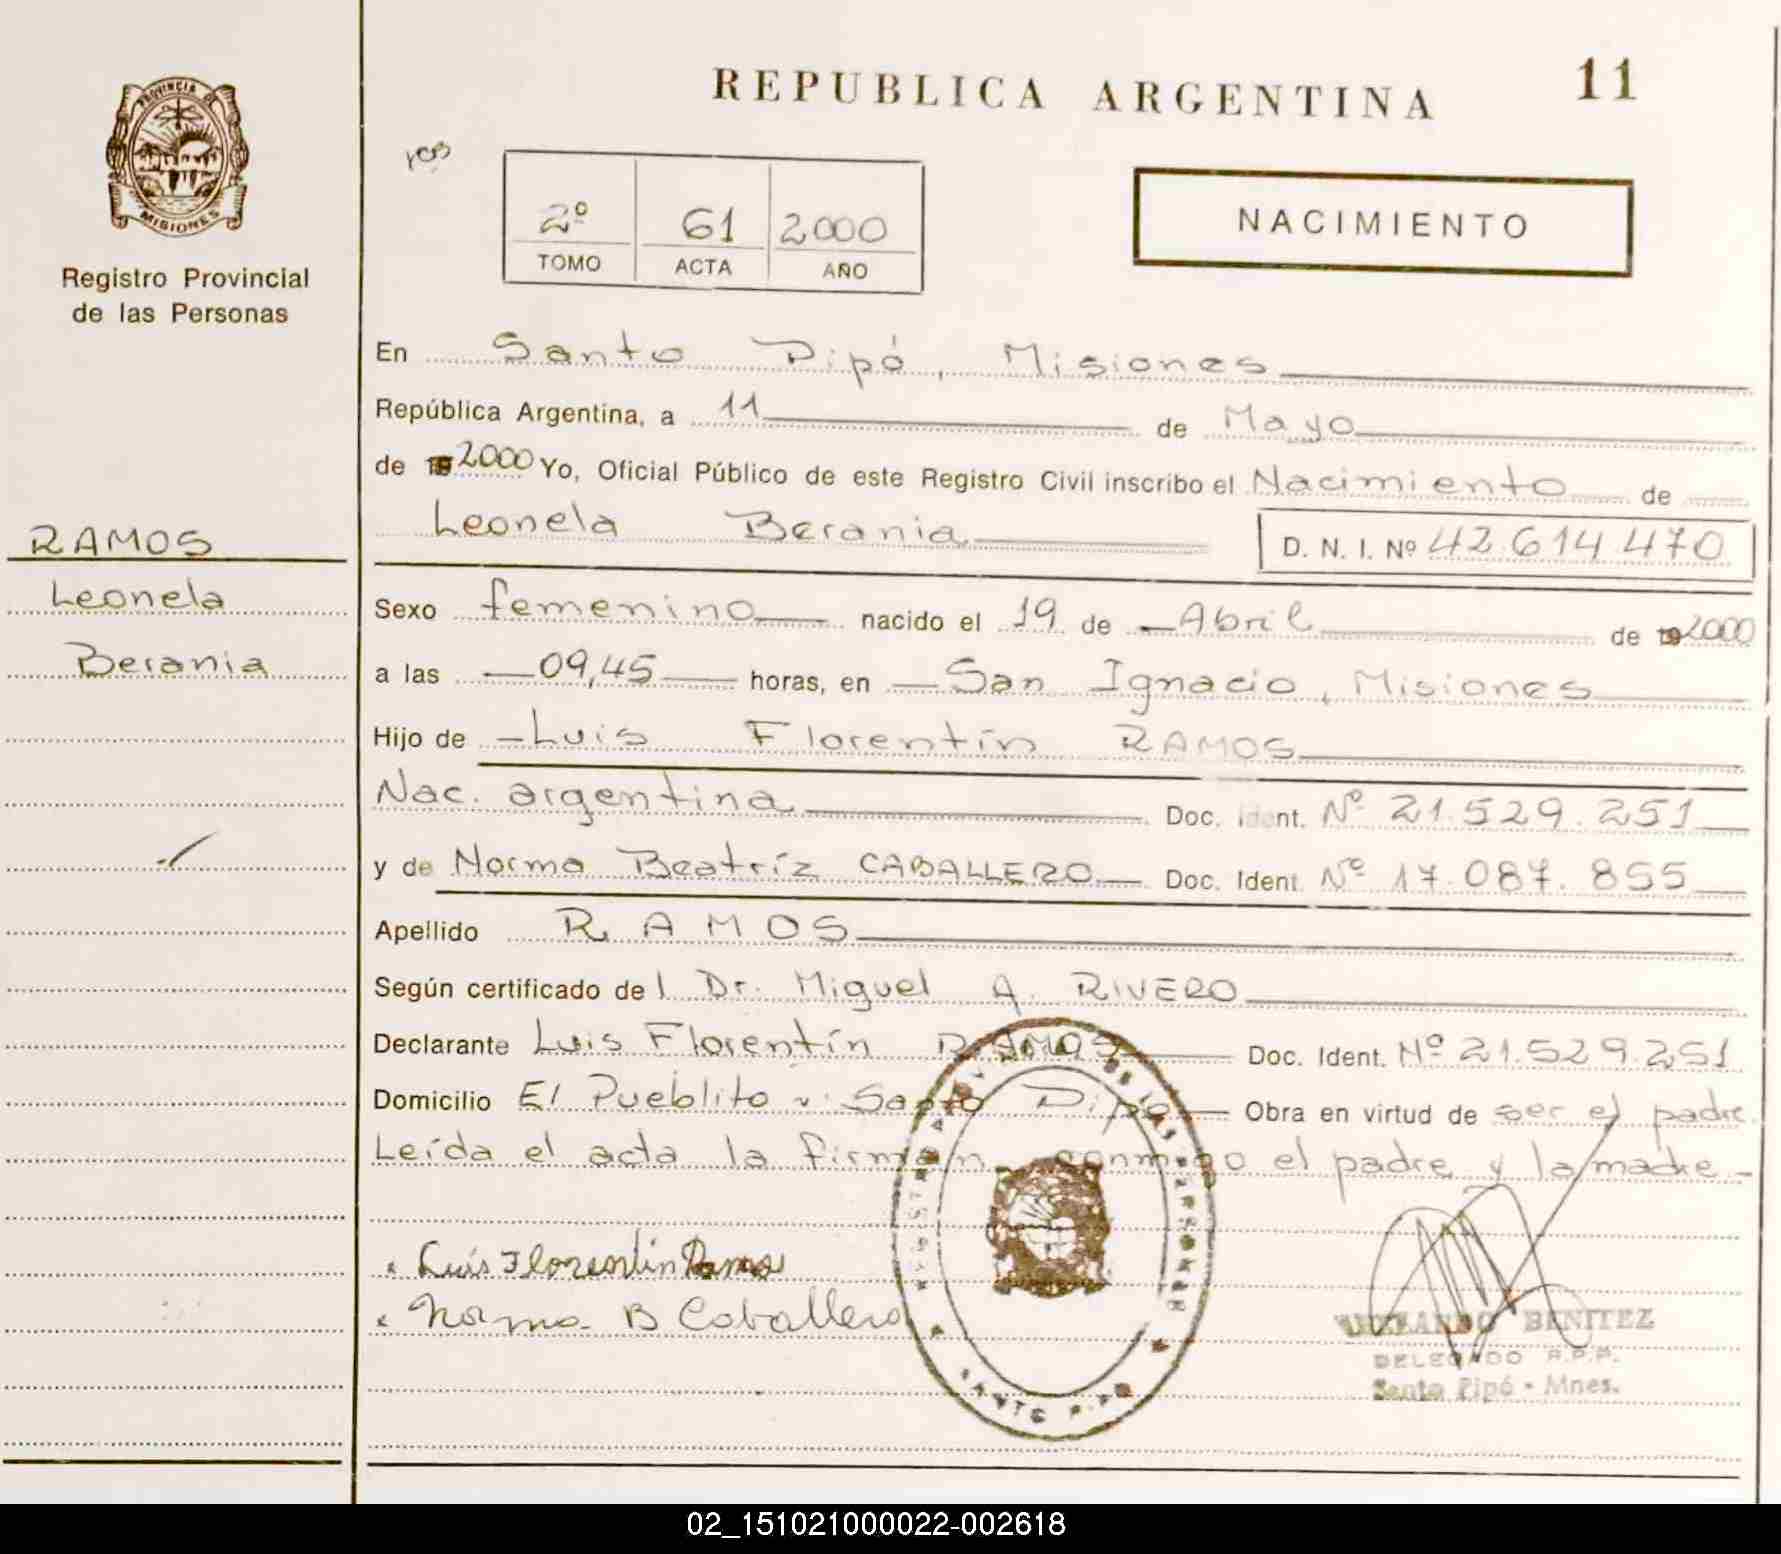 REPUBLICA ARGENTINA 11
PROVINCIA DE
MISIONES
Registro Provincial
de las Personas
2º 61 2000
TOMO ACTA AÑO
NACIMIENTO
En Santo Pipó, Misiones
República Argentina, a 11 de Mayo
de 2000 Yo, Oficial Público de este Registro Civil inscribo el Nacimiento de
Leonela Berania D. N. I. Nº 42.614.470
RAMOS
Leonela
Berania
Sexo femenino nacido el 19 de Abril de 2000
a las 09,45 horas, en San Ignacio, Misiones
Hijo de Luis Florentín RAMOS
Nac. argentina Doc. Ident. Nº 21.529.251
y de Norma Beatríz CABALLERO Doc. Ident. Nº 17.087.855
Apellido RAMOS
Según certificado del Dr. Miguel A. RIVERO
Declarante Luis Florentín RAMOS Doc. Ident. Nº 21.529.251
Domicilio El Pueblito Santo Pipó Obra en virtud de ser el padre
Leída el acta la firman conmigo el padre y la madre
Luis Florentin Ramos
Norma B Caballero
BENITEZ
DELEGADO R.P.P.
Santo Pipó - Mnes.
SANTO PIPO
02_151021000022-002618